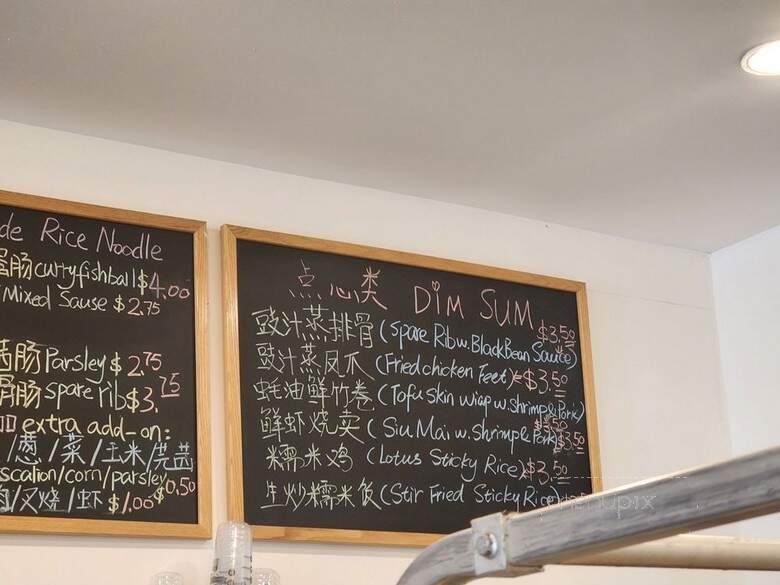 de Rice Noodle
蛋肠 curry fishball $4.00
Mixed Sause $2.75
茜肠 Parsley $2.75
骨肠 spare rib $3.75
加 extra add-on:
/葱/菜/玉米/芫茜
scallion/corn/parsley $0.50
肉/叉烧/虾 $1.00
点心类 DIM SUM
豉汁蒸排骨 (spare Rib w. Black Bean Sauce) $3.50
豉汁蒸凤爪 (Fried chicken Feet) $3.50
蚝油鲜竹卷 (Tofu skin wrap w. shrimp & Pork) $3.50
鲜虾烧卖 (Siu Mai w. Shrimp & Pork) $3.50
糯米鸡 (Lotus Sticky Rice) $3.50
生炒糯米饭 (Stir Fried Sticky Rice
menupix